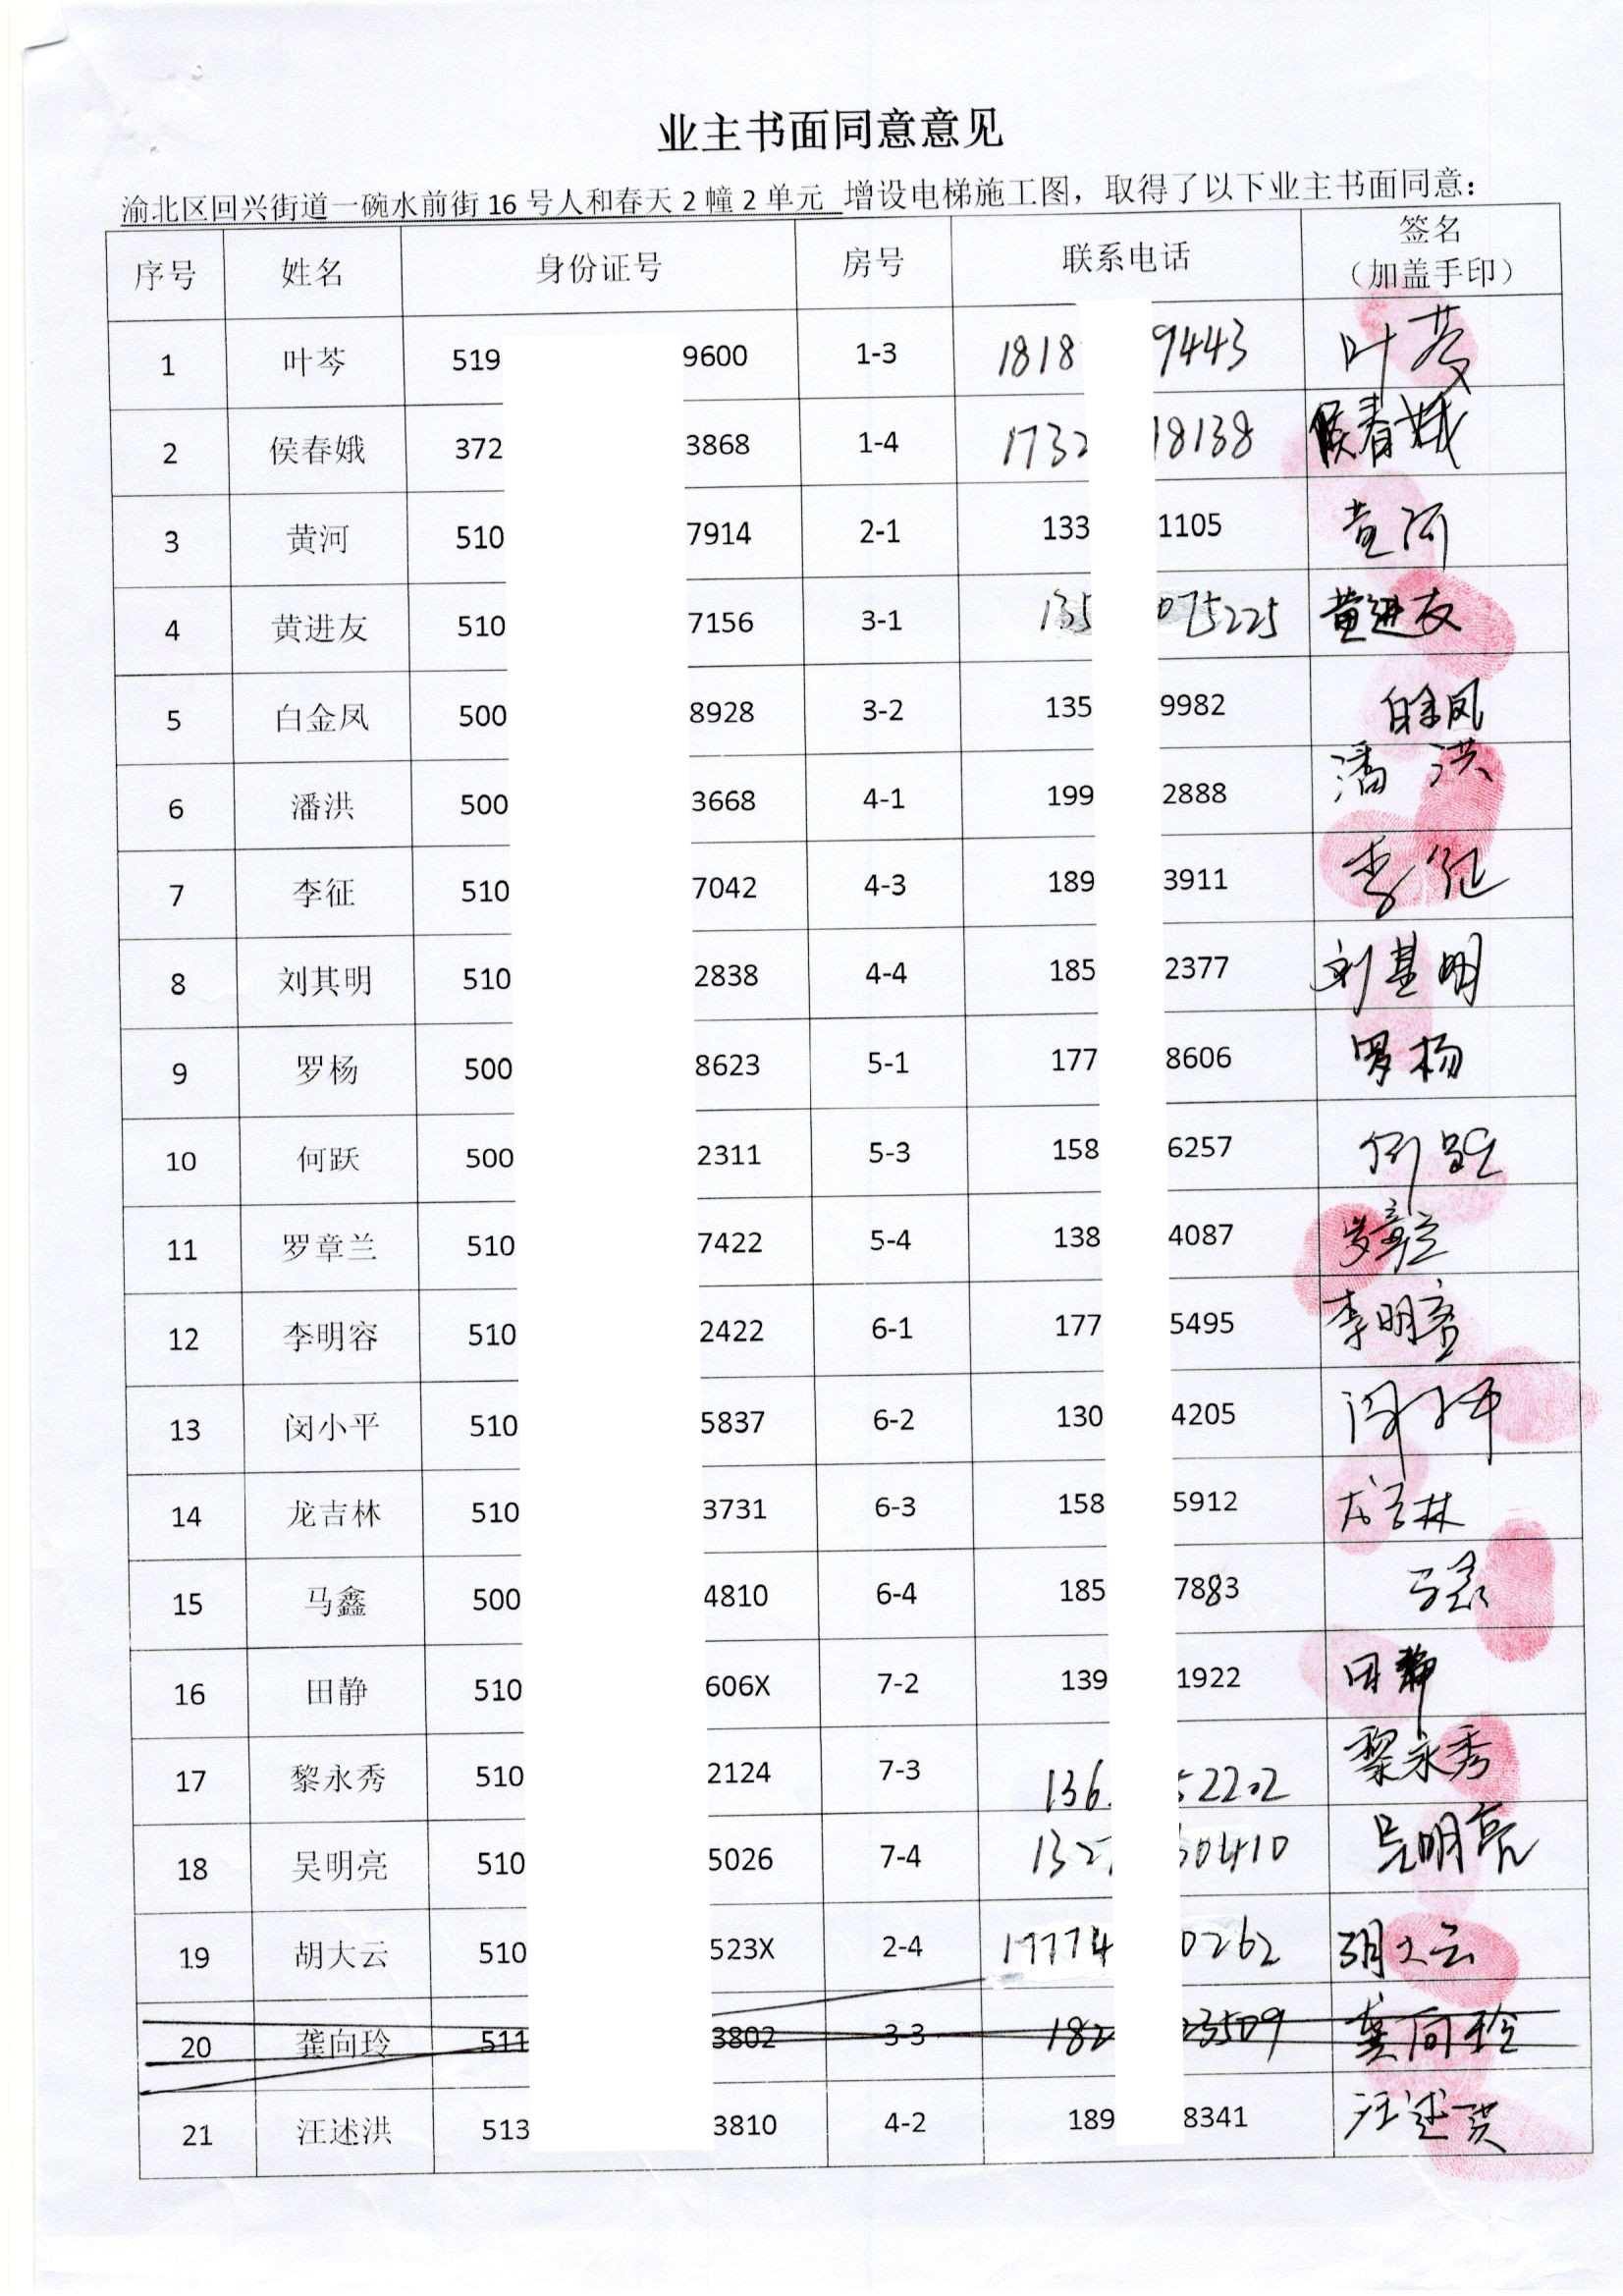 业主书面同意意见
渝北区回兴街道一碗水前街 16 号人和春天 2 幢 2 单元 增设电梯施工图，取得了以下业主书面同意：
序号 姓名 身份证号 房号 联系电话 签名（加盖手印）
1 叶芩 519 9600 1-3 1818 9443 叶芩
2 侯春娥 372 3868 1-4 1732 18138 侯春娥
3 黄河 510 7914 2-1 133 1105 黄河
4 黄进友 510 7156 3-1 135 075225 黄进友
5 白金凤 500 8928 3-2 135 9982 白金凤
6 潘洪 500 3668 4-1 199 2888 潘洪
7 李征 510 7042 4-3 189 3911 李征
8 刘其明 510 2838 4-4 185 2377 刘其明
9 罗杨 500 8623 5-1 177 8606 罗杨
10 何跃 500 2311 5-3 158 6257 何跃
11 罗章兰 510 7422 5-4 138 4087 罗章兰
12 李明容 510 2422 6-1 177 5495 李明容
13 闵小平 510 5837 6-2 130 4205 闵小平
14 龙吉林 510 3731 6-3 158 5912 龙吉林
15 马鑫 500 4810 6-4 185 7883 马鑫
16 田静 510 606X 7-2 139 1922 田静
17 黎永秀 510 2124 7-3 136 52202 黎永秀
18 吴明亮 510 5026 7-4 132 30410 吴明亮
19 胡大云 510 523X 2-4 17774 0262 胡大云
20 龚向玲 511 3802 3-3 182 23509 龚向玲
21 汪述洪 513 3810 4-2 189 8341 汪述洪